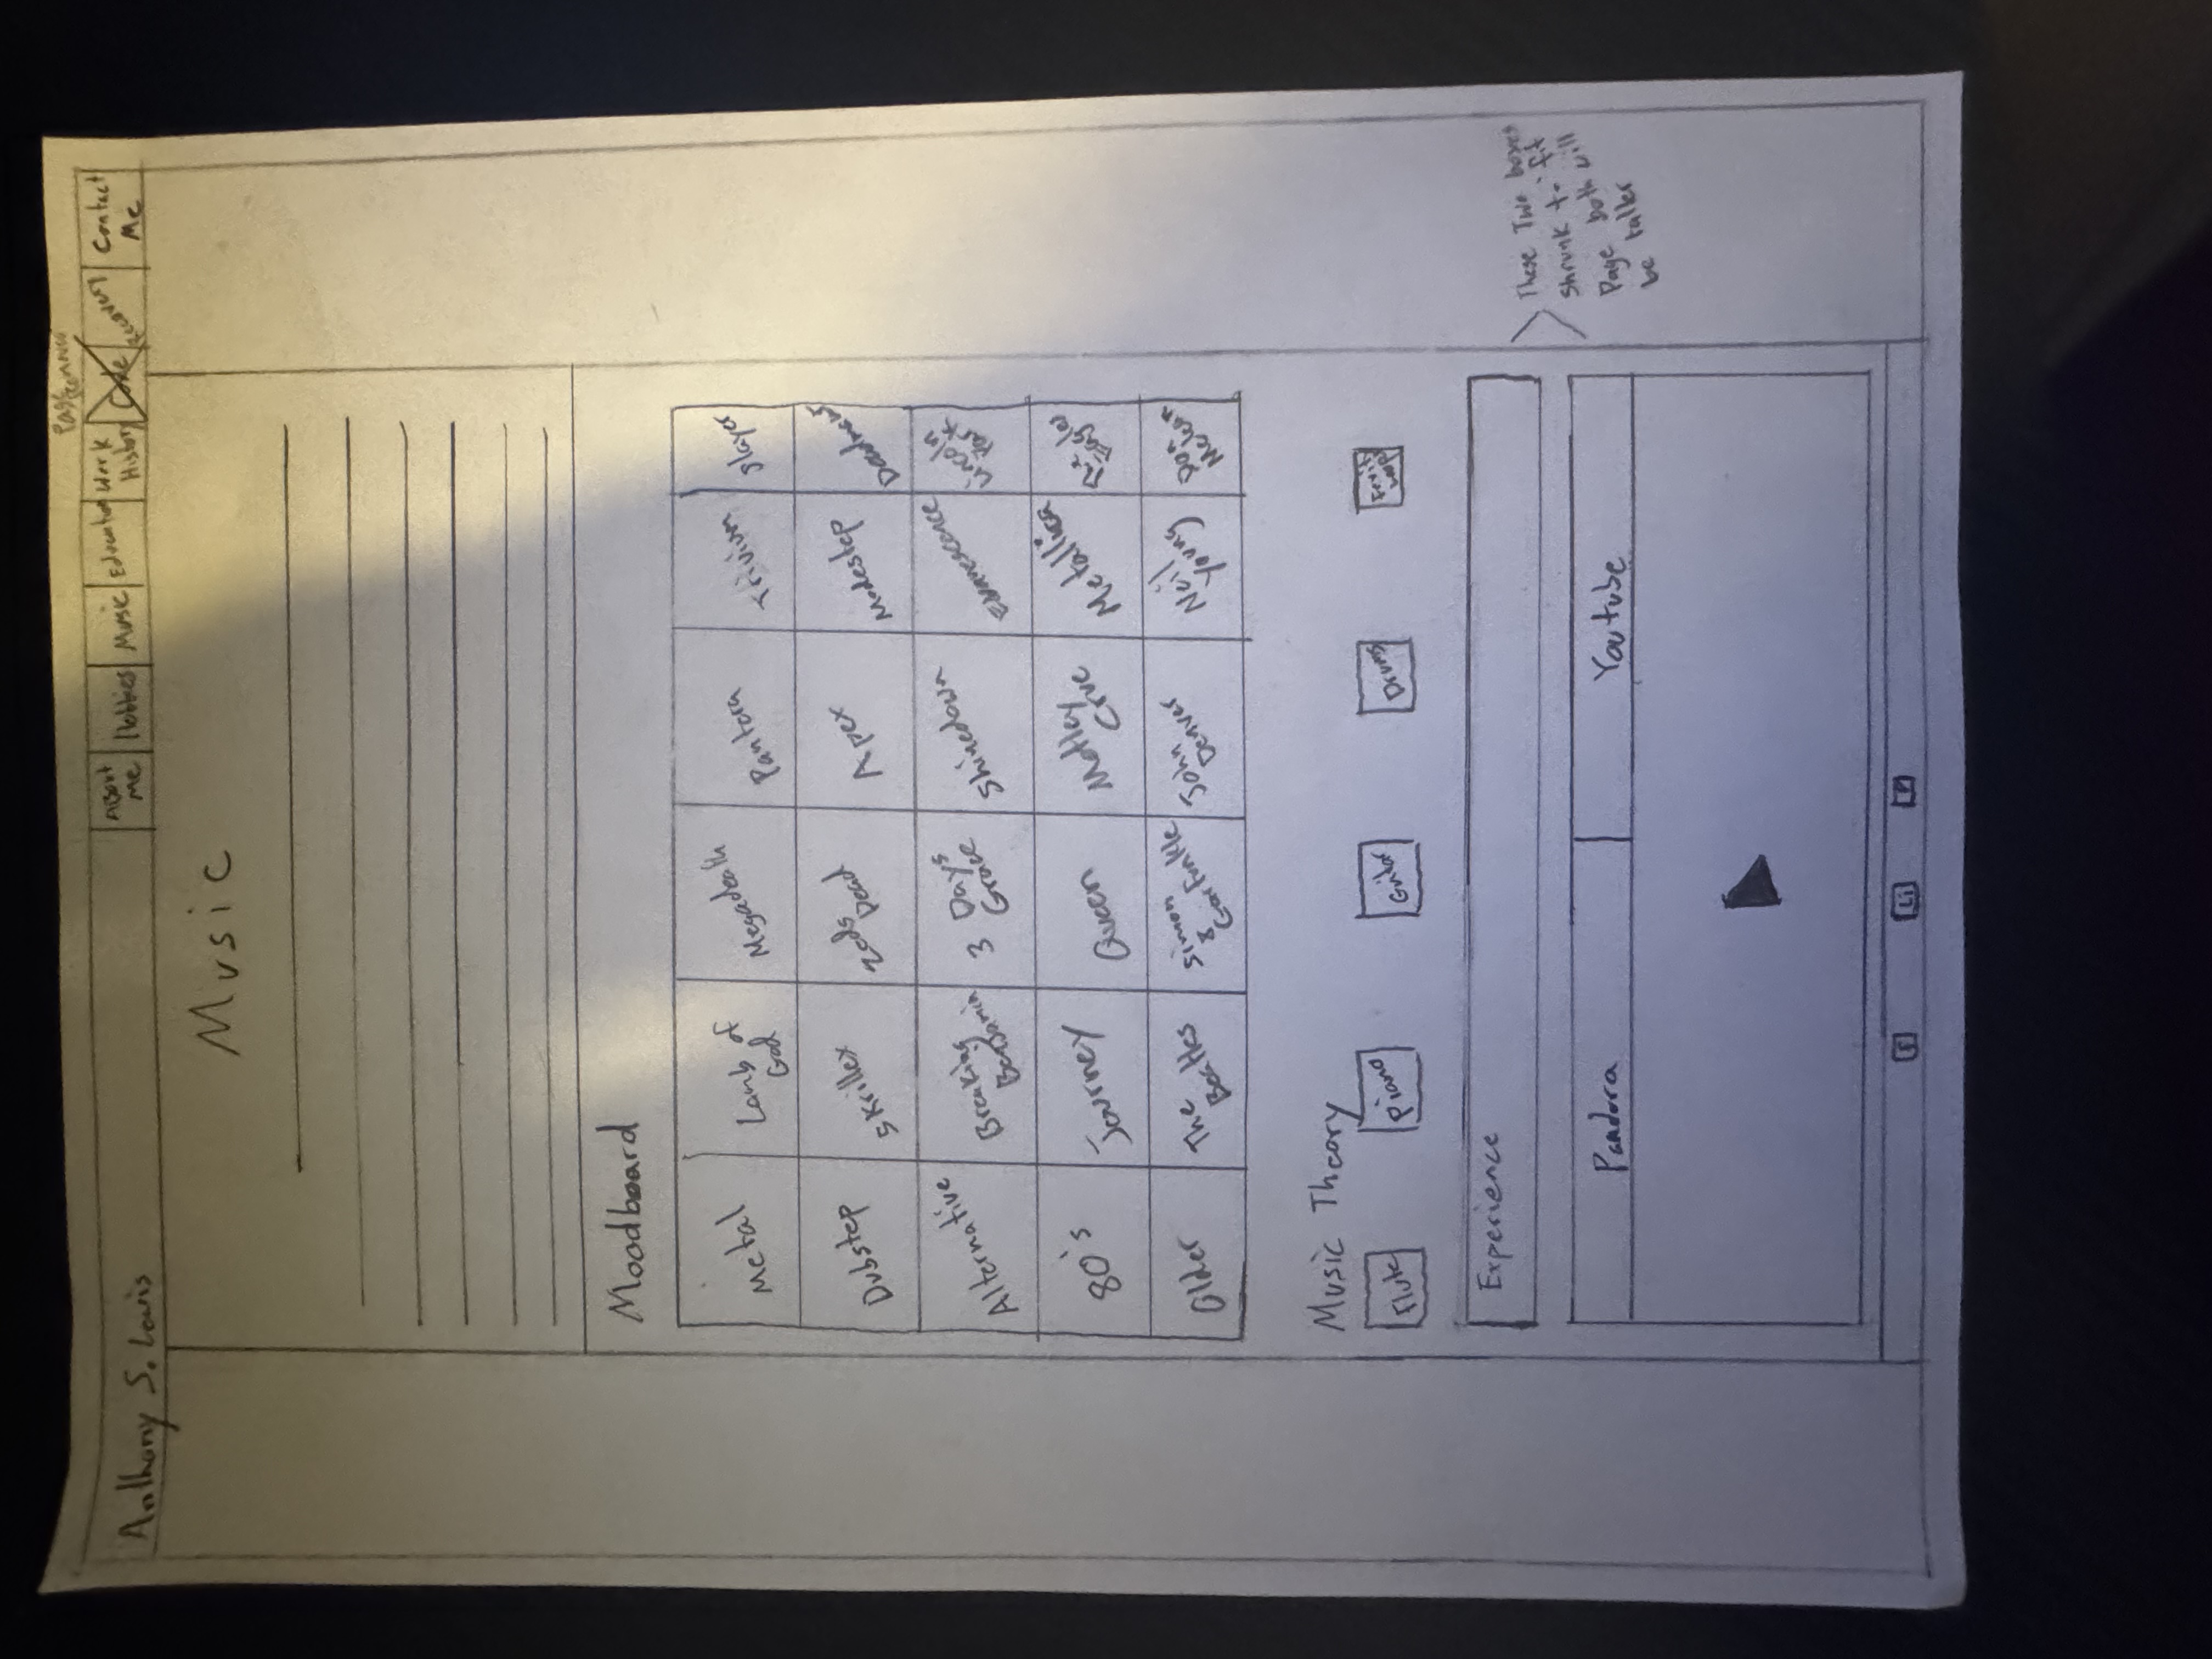 Page Removed
Anthony S. Lewis
About Me
Hobbies
Music
Education
Work History
Code
Recovery
Contact Me
Music
Moodboard
Metal
Lamb of God
Megadeath
Pantera
Trivium
Slayer
Dubstep
Skrillex
Zeds Dead
Apex
Modestep
Alternative
Breaking Benjamin
3 Days Grace
Shinedown
Evanescence
Lincoln Park
80's
Journey
Queen
Motley Crue
Metallica
The Eagles
Older
The Beatles
Simon & Garfunkle
John Denver
Neil Young
Don Mclean
Music Theory
Flute
Piano
Guitar
Drums
Experience
These Two boxes
shrunk to fit
Page both will
be taller
Pandora
Youtube
f
Li